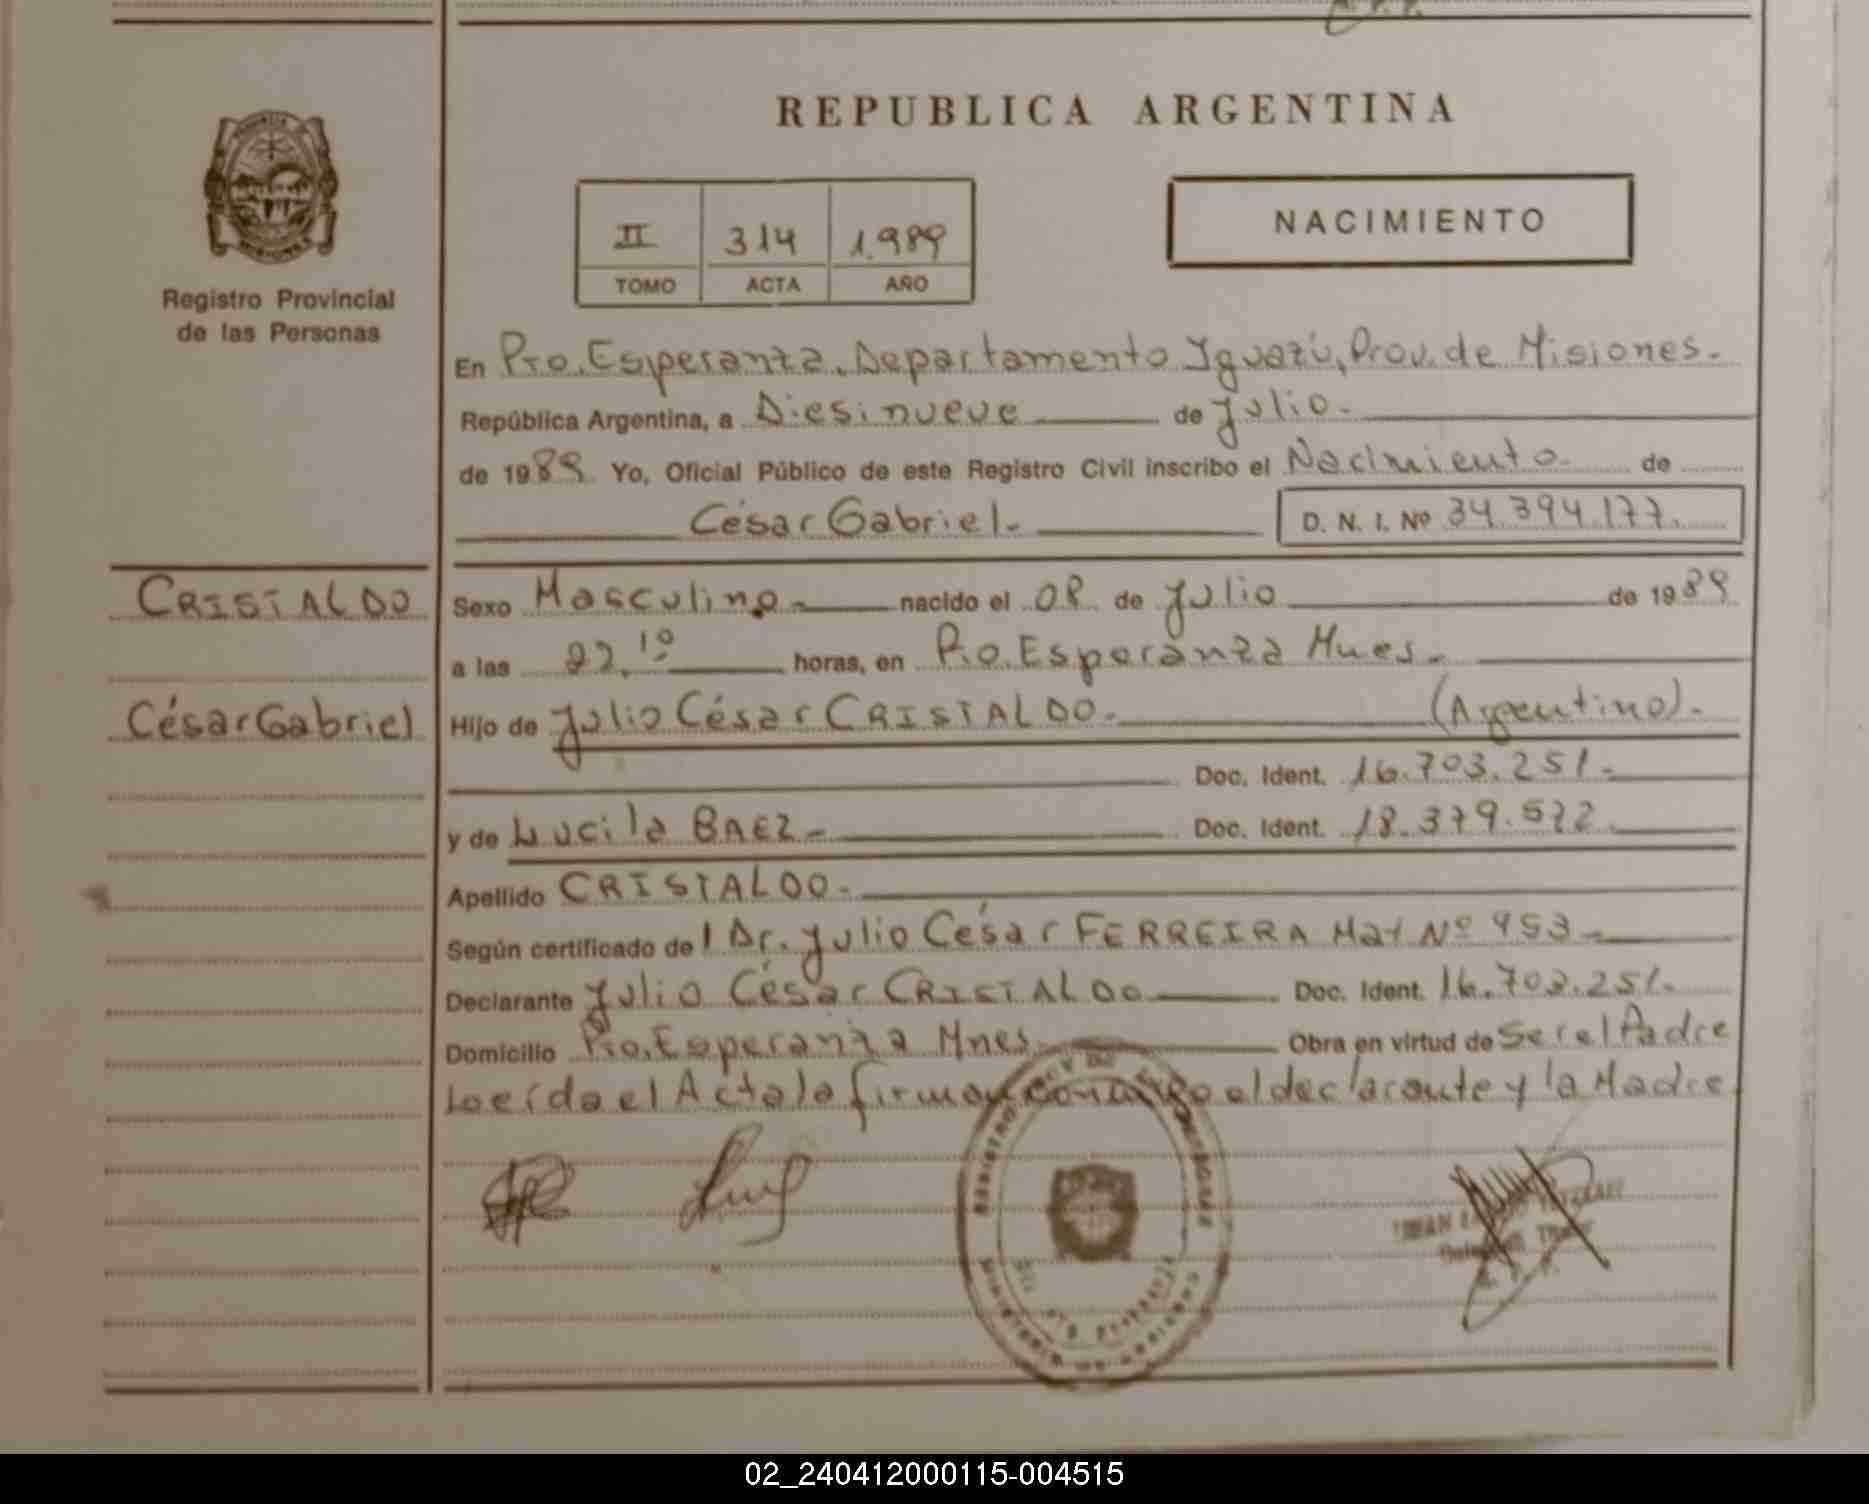 REPUBLICA ARGENTINA
II 314 1.989
TOMO ACTA AÑO
NACIMIENTO
Registro Provincial
de las Personas
En Pto. Esperanza, Departamento Iguazú, Prov. de Misiones.
República Argentina, a Diesinueve de Julio.
de 1989 Yo, Oficial Público de este Registro Civil inscribo el Nacimiento de
César Gabriel. D. N. I. Nº 34.394.177.
CRISTALDO
César Gabriel
Sexo Masculino nacido el 08 de Julio de 1989
a las 22.10 horas, en Pto. Esperanza Mnes.
Hijo de Julio César CRISTALDO. (Argentino).
Doc. Ident. 16.703.251.
y de Lucila BAEZ Doc. Ident. 18.379.572
Apellido CRISTALDO.
Según certificado del Dr. Julio César FERREIRA Mat Nº 953
Declarante Julio César CRISTALDO Doc. Ident. 16.703.251.
Domicilio Pto. Esperanza Mnes. Obra en virtud de Ser el Padre
Leída el Acta la firman conmigo el declarante y la Madre
02_240412000115-004515